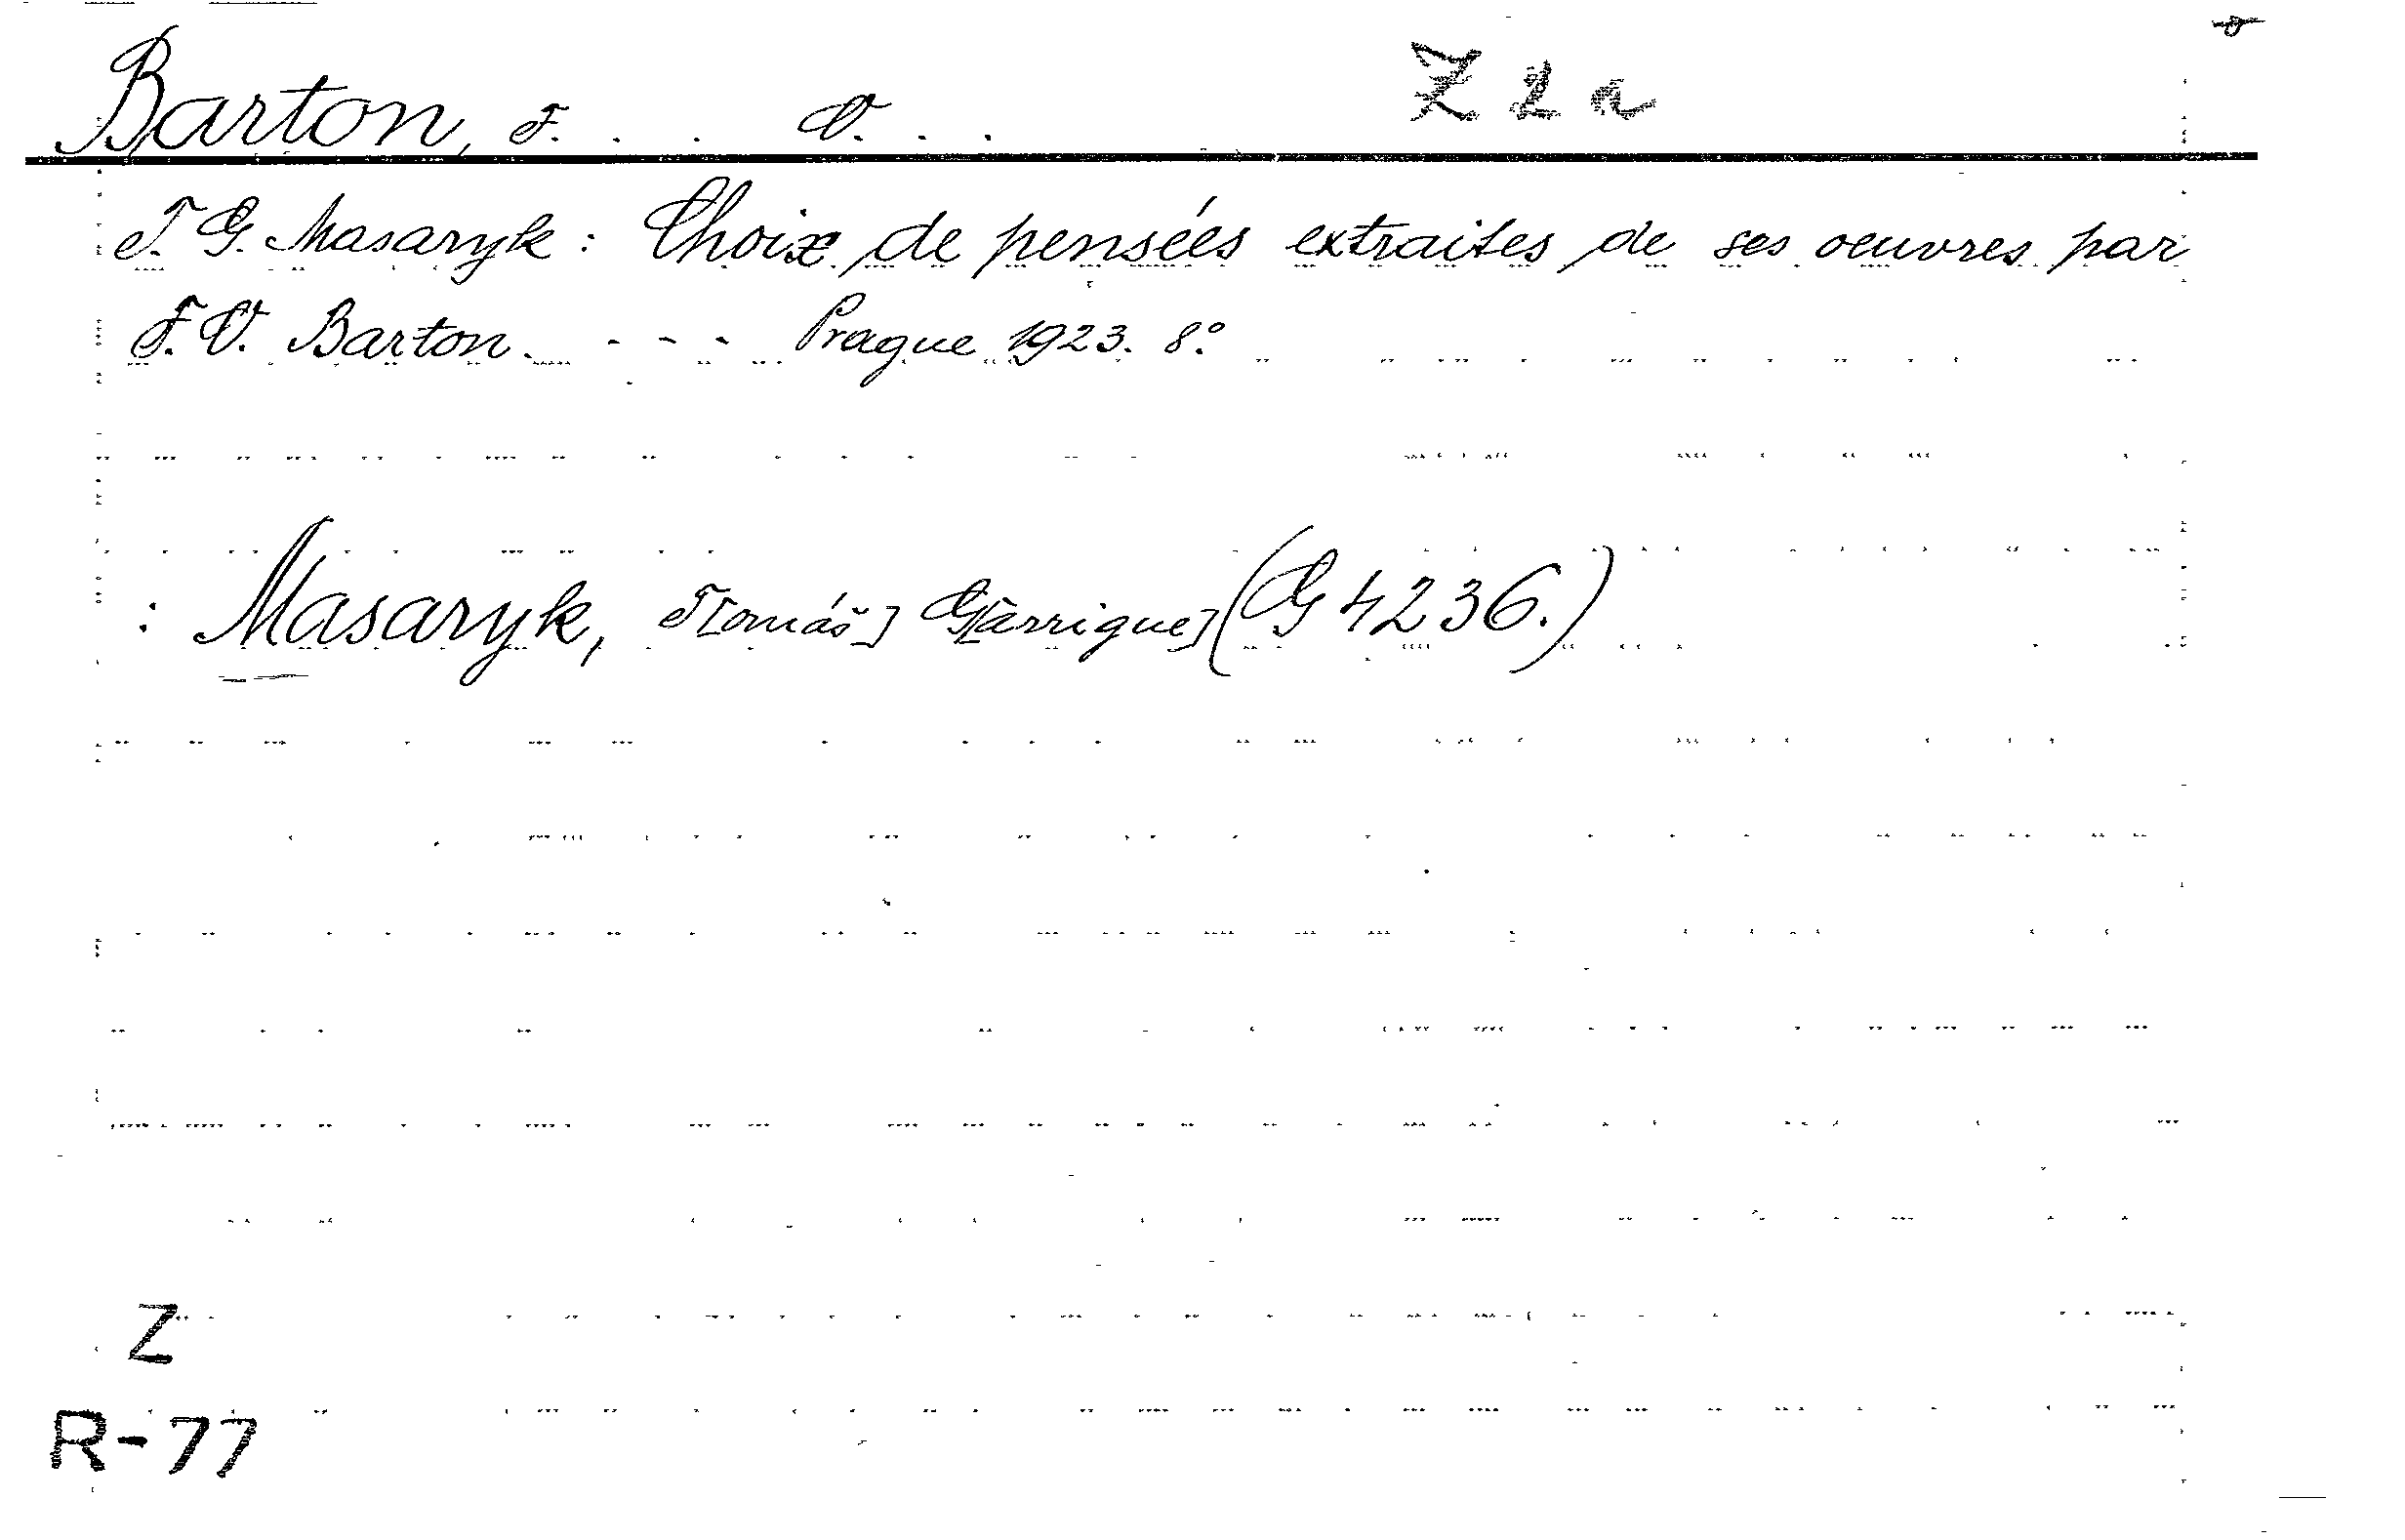 Barton, F. . . V. . . Z 2 a
T. G. Masaryk : Choix de pensées extraites de ses oeuvres par
F. V. Barton. - - - Prague 1923. 8°.
: Masaryk, T[omáš] G[arrigue] (G 4236.)
Z
R-77